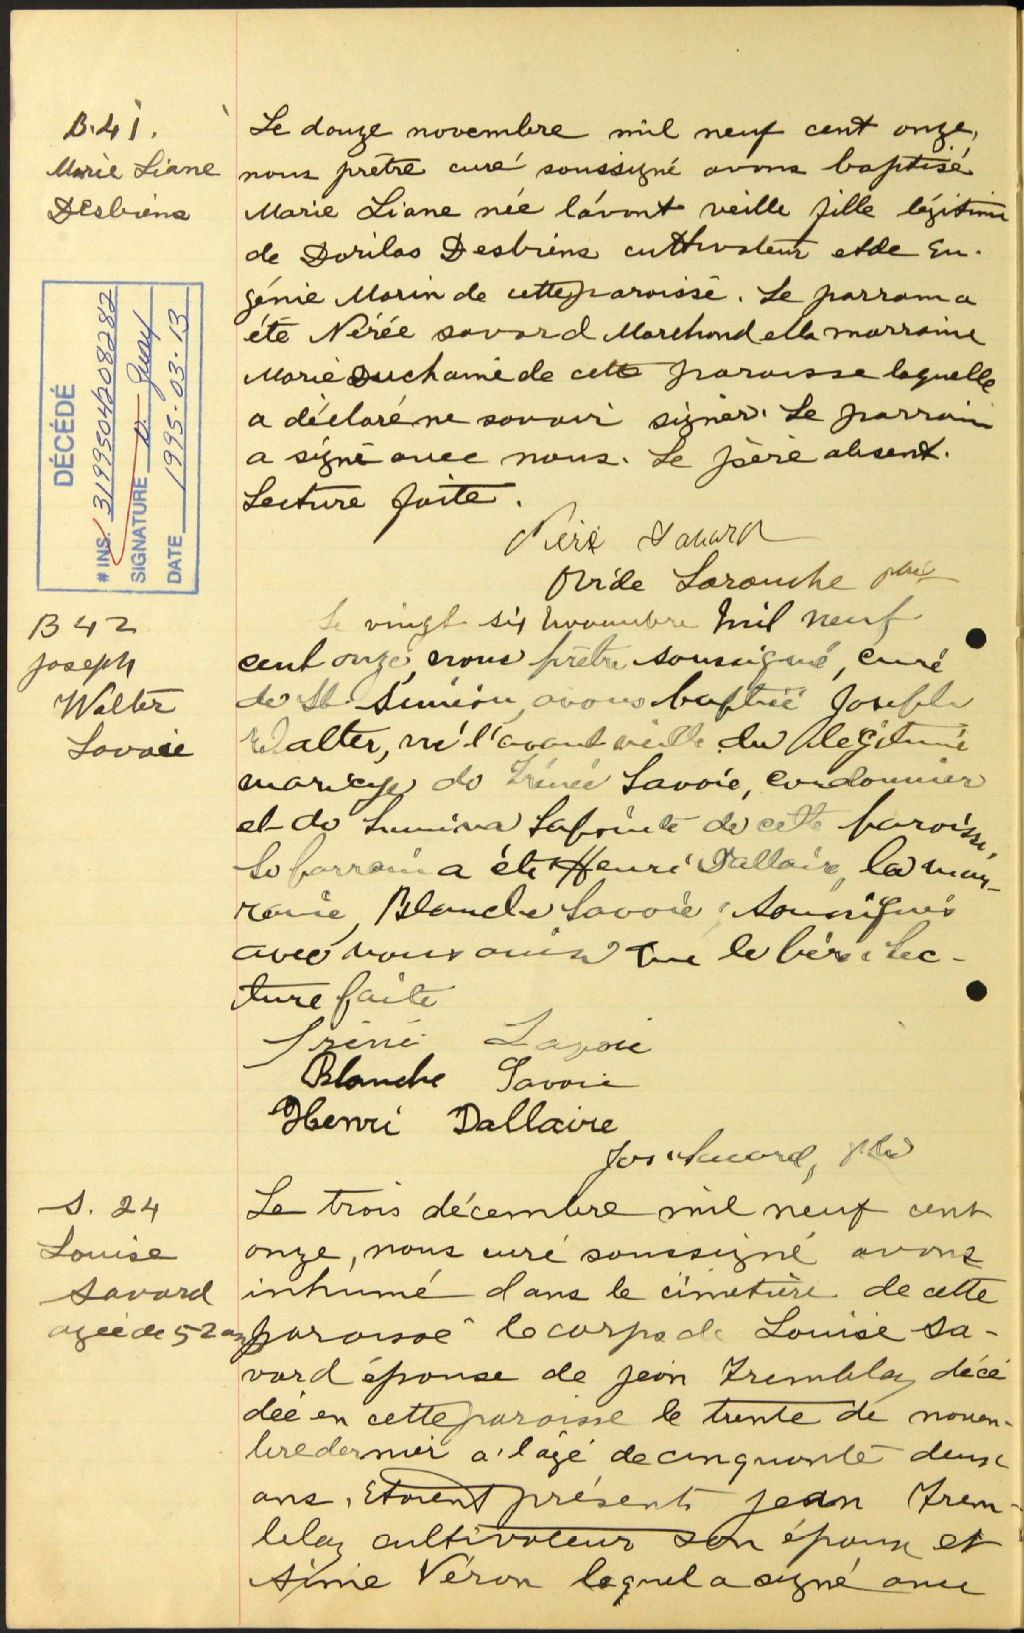 B.41.
Marie Liane
Desbiens
Le douze novembre mil neuf cent onze,
nous prêtre curé soussigné avons baptisé
Marie Liane née l'avant veille fille légitime
de Dorilas Desbiens cultivateur et de Eu-
génie Morin de cette paroisse. Le parrain a
été Nérée Savard Marchand et la marraine
Marie Duchaine de cette paroisse laquelle
a déclaré ne savoir signer. Le parrain
a signé avec nous. Le père absent.
Lecture faite.
Néré Savard
Ovide Larouche ptre
DÉCÉDÉ
# INS. 3199504208282
SIGNATURE
DATE 1995-03-13
B 42
Joseph
Walter
Savoie
Le vingt six novembre mil neuf
cent onze, nous prêtre soussigné, curé
de St Siméon, avons baptisé Joseph
Walter, né l'avant veille du légitime
mariage de Irénée Savoie, cordonnier
et de Lapointe de cette paroisse,
Le parrain a été Henri Dallaire, la mar-
raine, Blanche Savoie, soussignés
avec nous ainsi que le père. Lec-
ture faite
Iréné Savoie
Blanche Savoie
Henri Dallaire
Jos Savard, ptre
S. 24
Louise
Savard
agée de 52 ans
Le trois décembre mil neuf cent
onze, nous curé soussigné avons
inhumé dans le cimetière de cette
paroisse le corps de Louise Sa-
vard épouse de Jean Tremblay décé
dée en cette paroisse le trente de novem-
bre dernier a l'âge de cinquante deux
ans. Etaient présents Jean Trem-
blay cultivateur son époux et
Aimé Véron lequel a signé avec